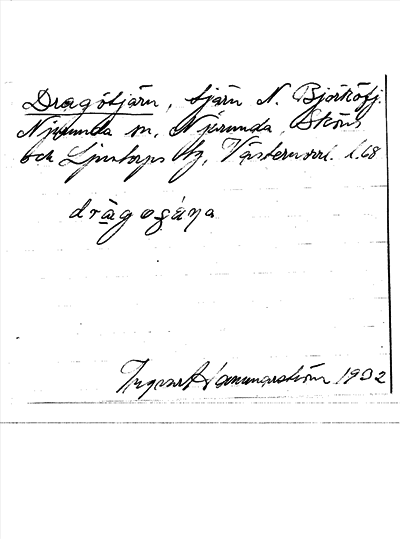 Dragötjärn, tjärn N. Björköfj.
Njurunda sn, Njurunda, Sköns
och Ljustorps tg, Västernorrl. l. 68
Ingvar Hammarström 1932